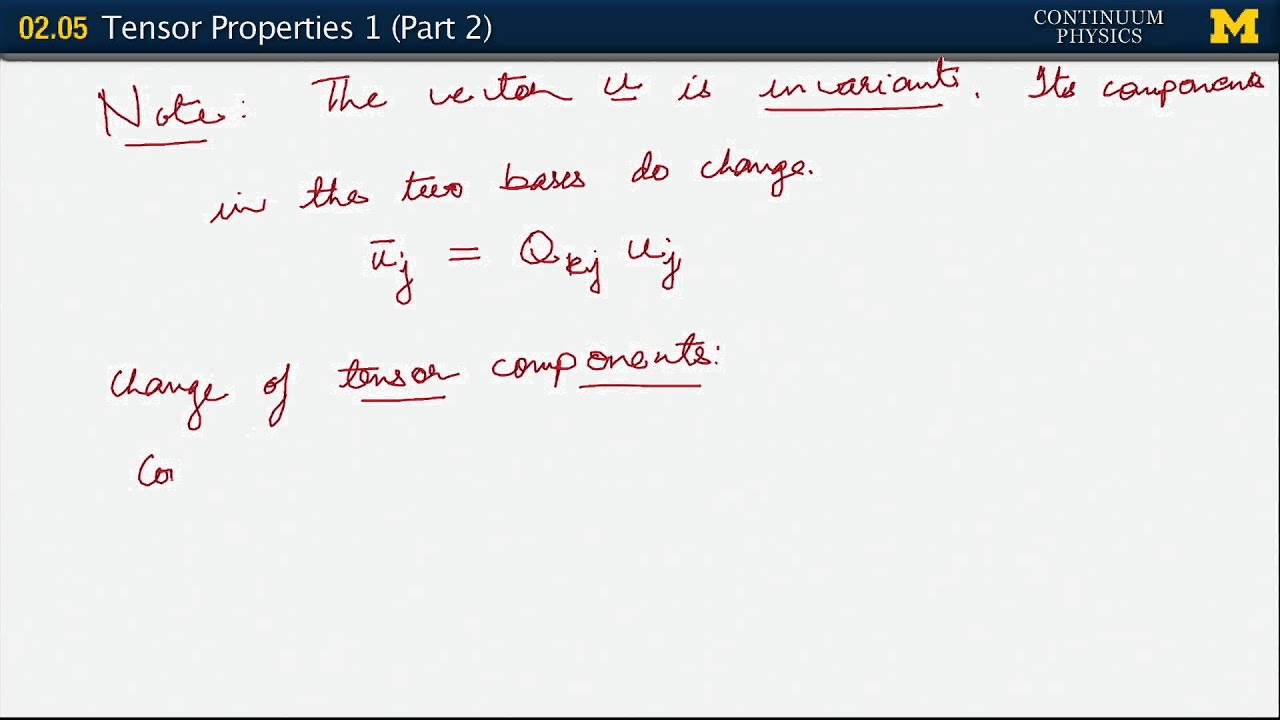 02.05 Tensor Properties 1 (Part 2)
CONTINUUM
PHYSICS
M
Note: The vector u is invariant. Its components
in the two bases do change.
ū_j = Q_kj u_j
Change of tensor components:
Co